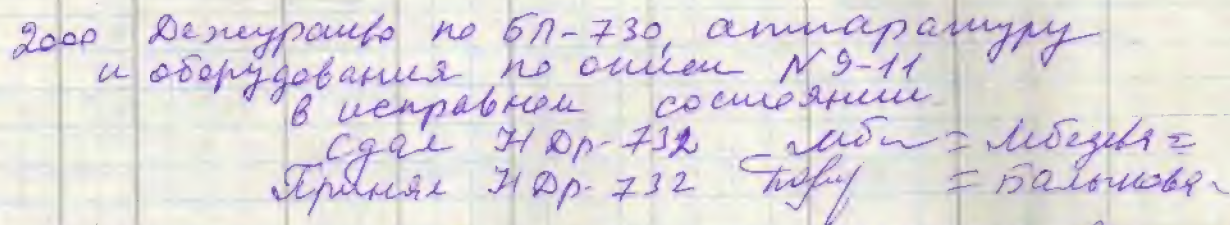 20⁰⁰ Дежурство по БП-730, аппаратуру
и оборудования по описи N 9-11
в исправном состоянии
Сдал НДр-732 = Лебедева =
Принял НДр-732 = Балыкова =